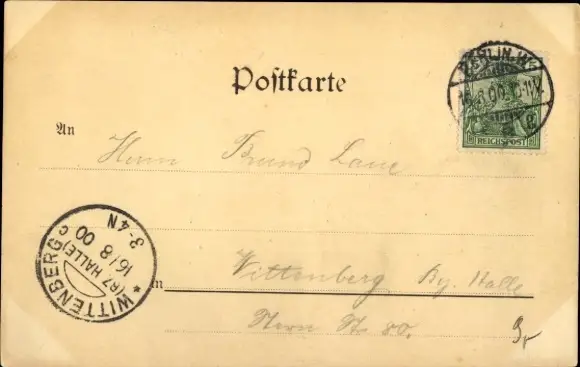 Postkarte
BERLIN.W.
16.8.00.10-11V.
REICHSPOST
An
Herrn Bruno
WITTENBERG
(BZ HALLE) c
16/8 00
3-4N
in Wittenberg Bz. Halle
Stern Str 80.